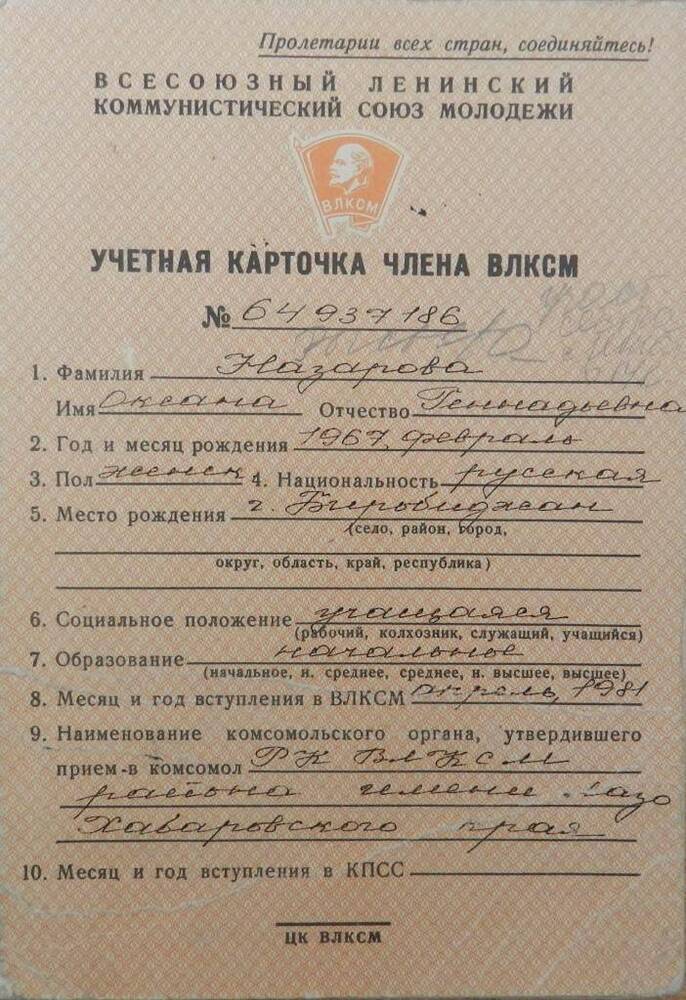 Пролетарии всех стран, соединяйтесь!
ВСЕСОЮЗНЫЙ ЛЕНИНСКИЙ
КОММУНИСТИЧЕСКИЙ СОЮЗ МОЛОДЕЖИ
ВЛКСМ
УЧЕТНАЯ КАРТОЧКА ЧЛЕНА ВЛКСМ
№ 64937186
1. Фамилия Назарова
Имя Оксана Отчество Геннадьевна
2. Год и месяц рождения 1967, февраль
3. Пол женск 4. Национальность русская
5. Место рождения г. Биробиджан
(село, район, город,
округ, область, край, республика)
6. Социальное положение учащаяся
(рабочий, колхозник, служащий, учащийся)
7. Образование начальное
(начальное, н. среднее, среднее, н. высшее, высшее)
8. Месяц и год вступления в ВЛКСМ апрель, 1981
9. Наименование комсомольского органа, утвердившего
прием в комсомол РК ВЛКСМ
района имени Лазо
Хабаровского края
10. Месяц и год вступления в КПСС
ЦК ВЛКСМ